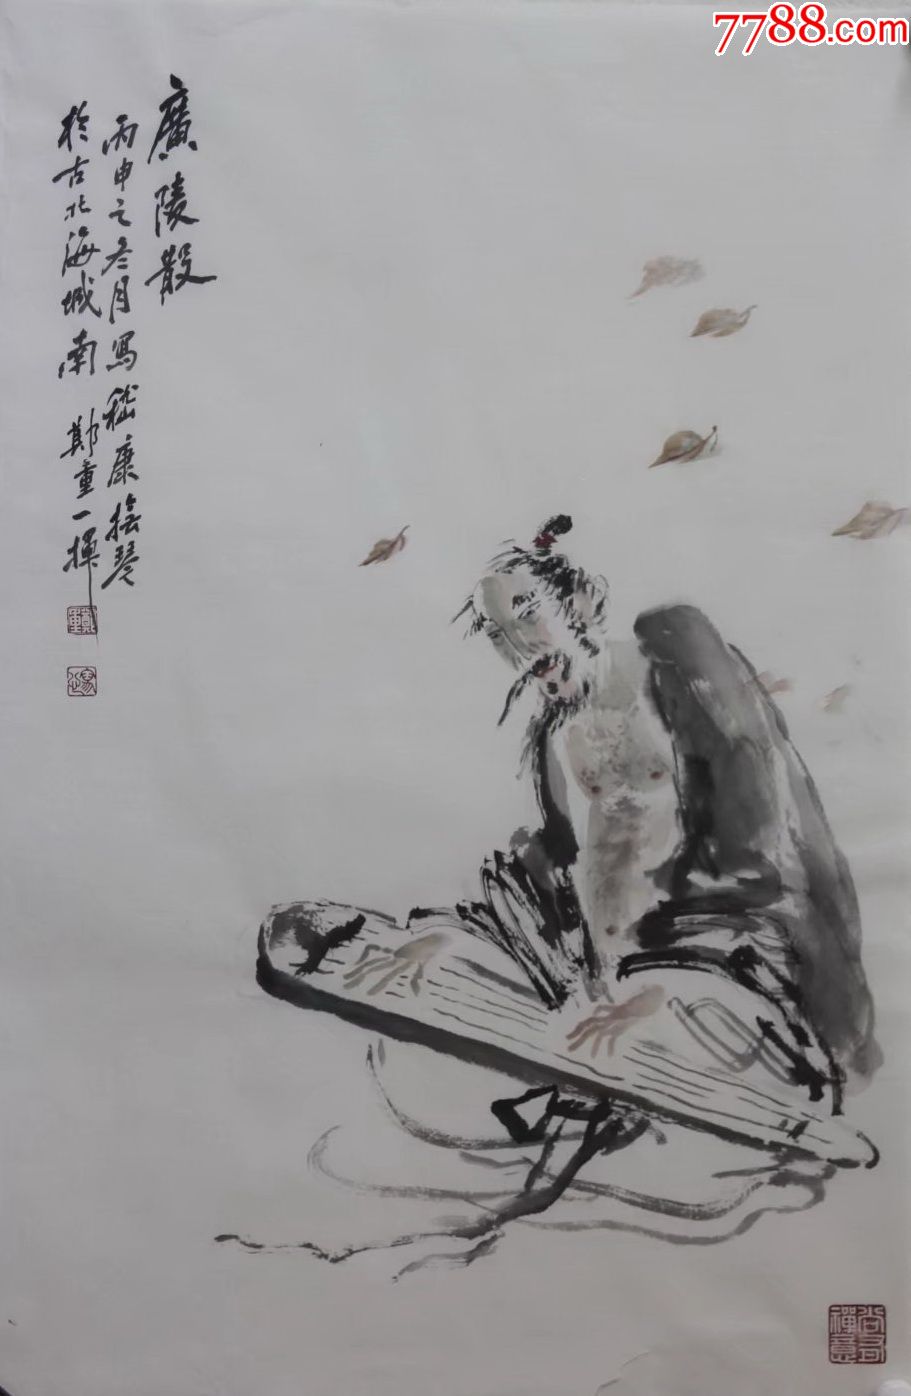 7788.com
廣陵散
丙申之冬月寫嵇康撫琴
於古北海城南 鄭重一揮
尚哥禪意